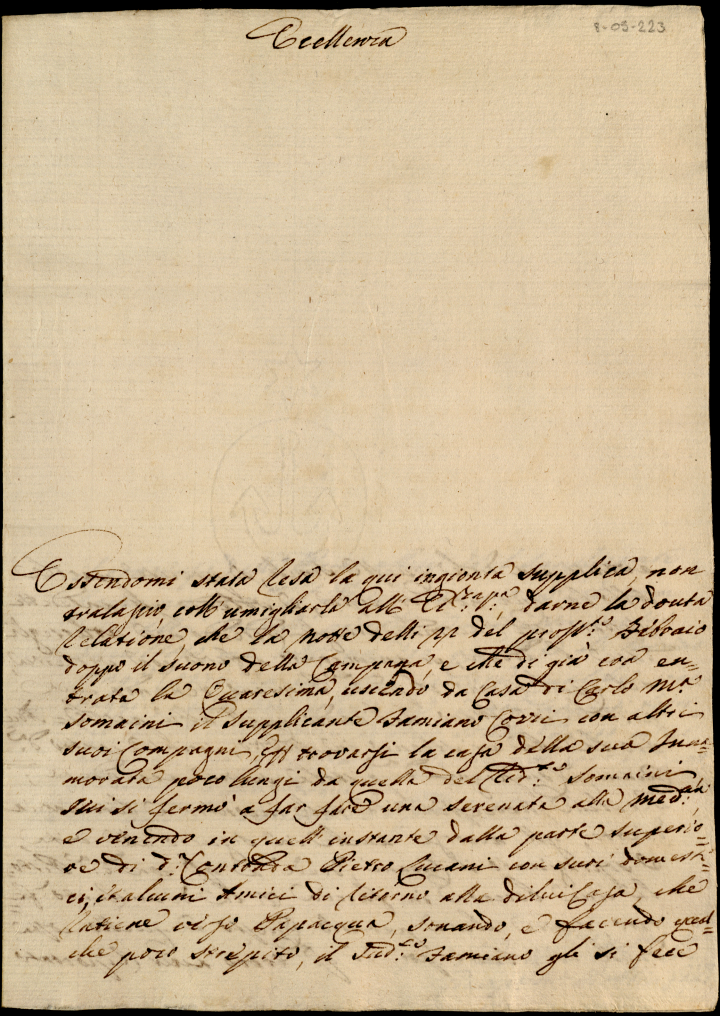 Eccellenza
8-05-223
Essendomi stata resa la qui ingionta supplica, non
tralascio, coll' umigliarla all' darne la dovuta
relatione, che la notte delli del Febraio
doppo il suono della Campana, e che di già era en=
trata la Quaresima, uscendo da Casa di Carlo
Somaini il supplicante Damiano con altri
suoi Compagni, trovarsi la casa della sua Inna=
morata poco lungi da quella del Somaini
ivi si fermò a far fare una serenata alla med.ma
e venendo in quell' instante dalla parte superio=
re di d.a Contrada Pietro Lucani con suoi domesti=
ci, et alcuni Amici di ritorno alla di lui Casa, che
ratiene verso Papacqua, sonando, e facendo qual=
che poco strepito, il Damiano gli si fece